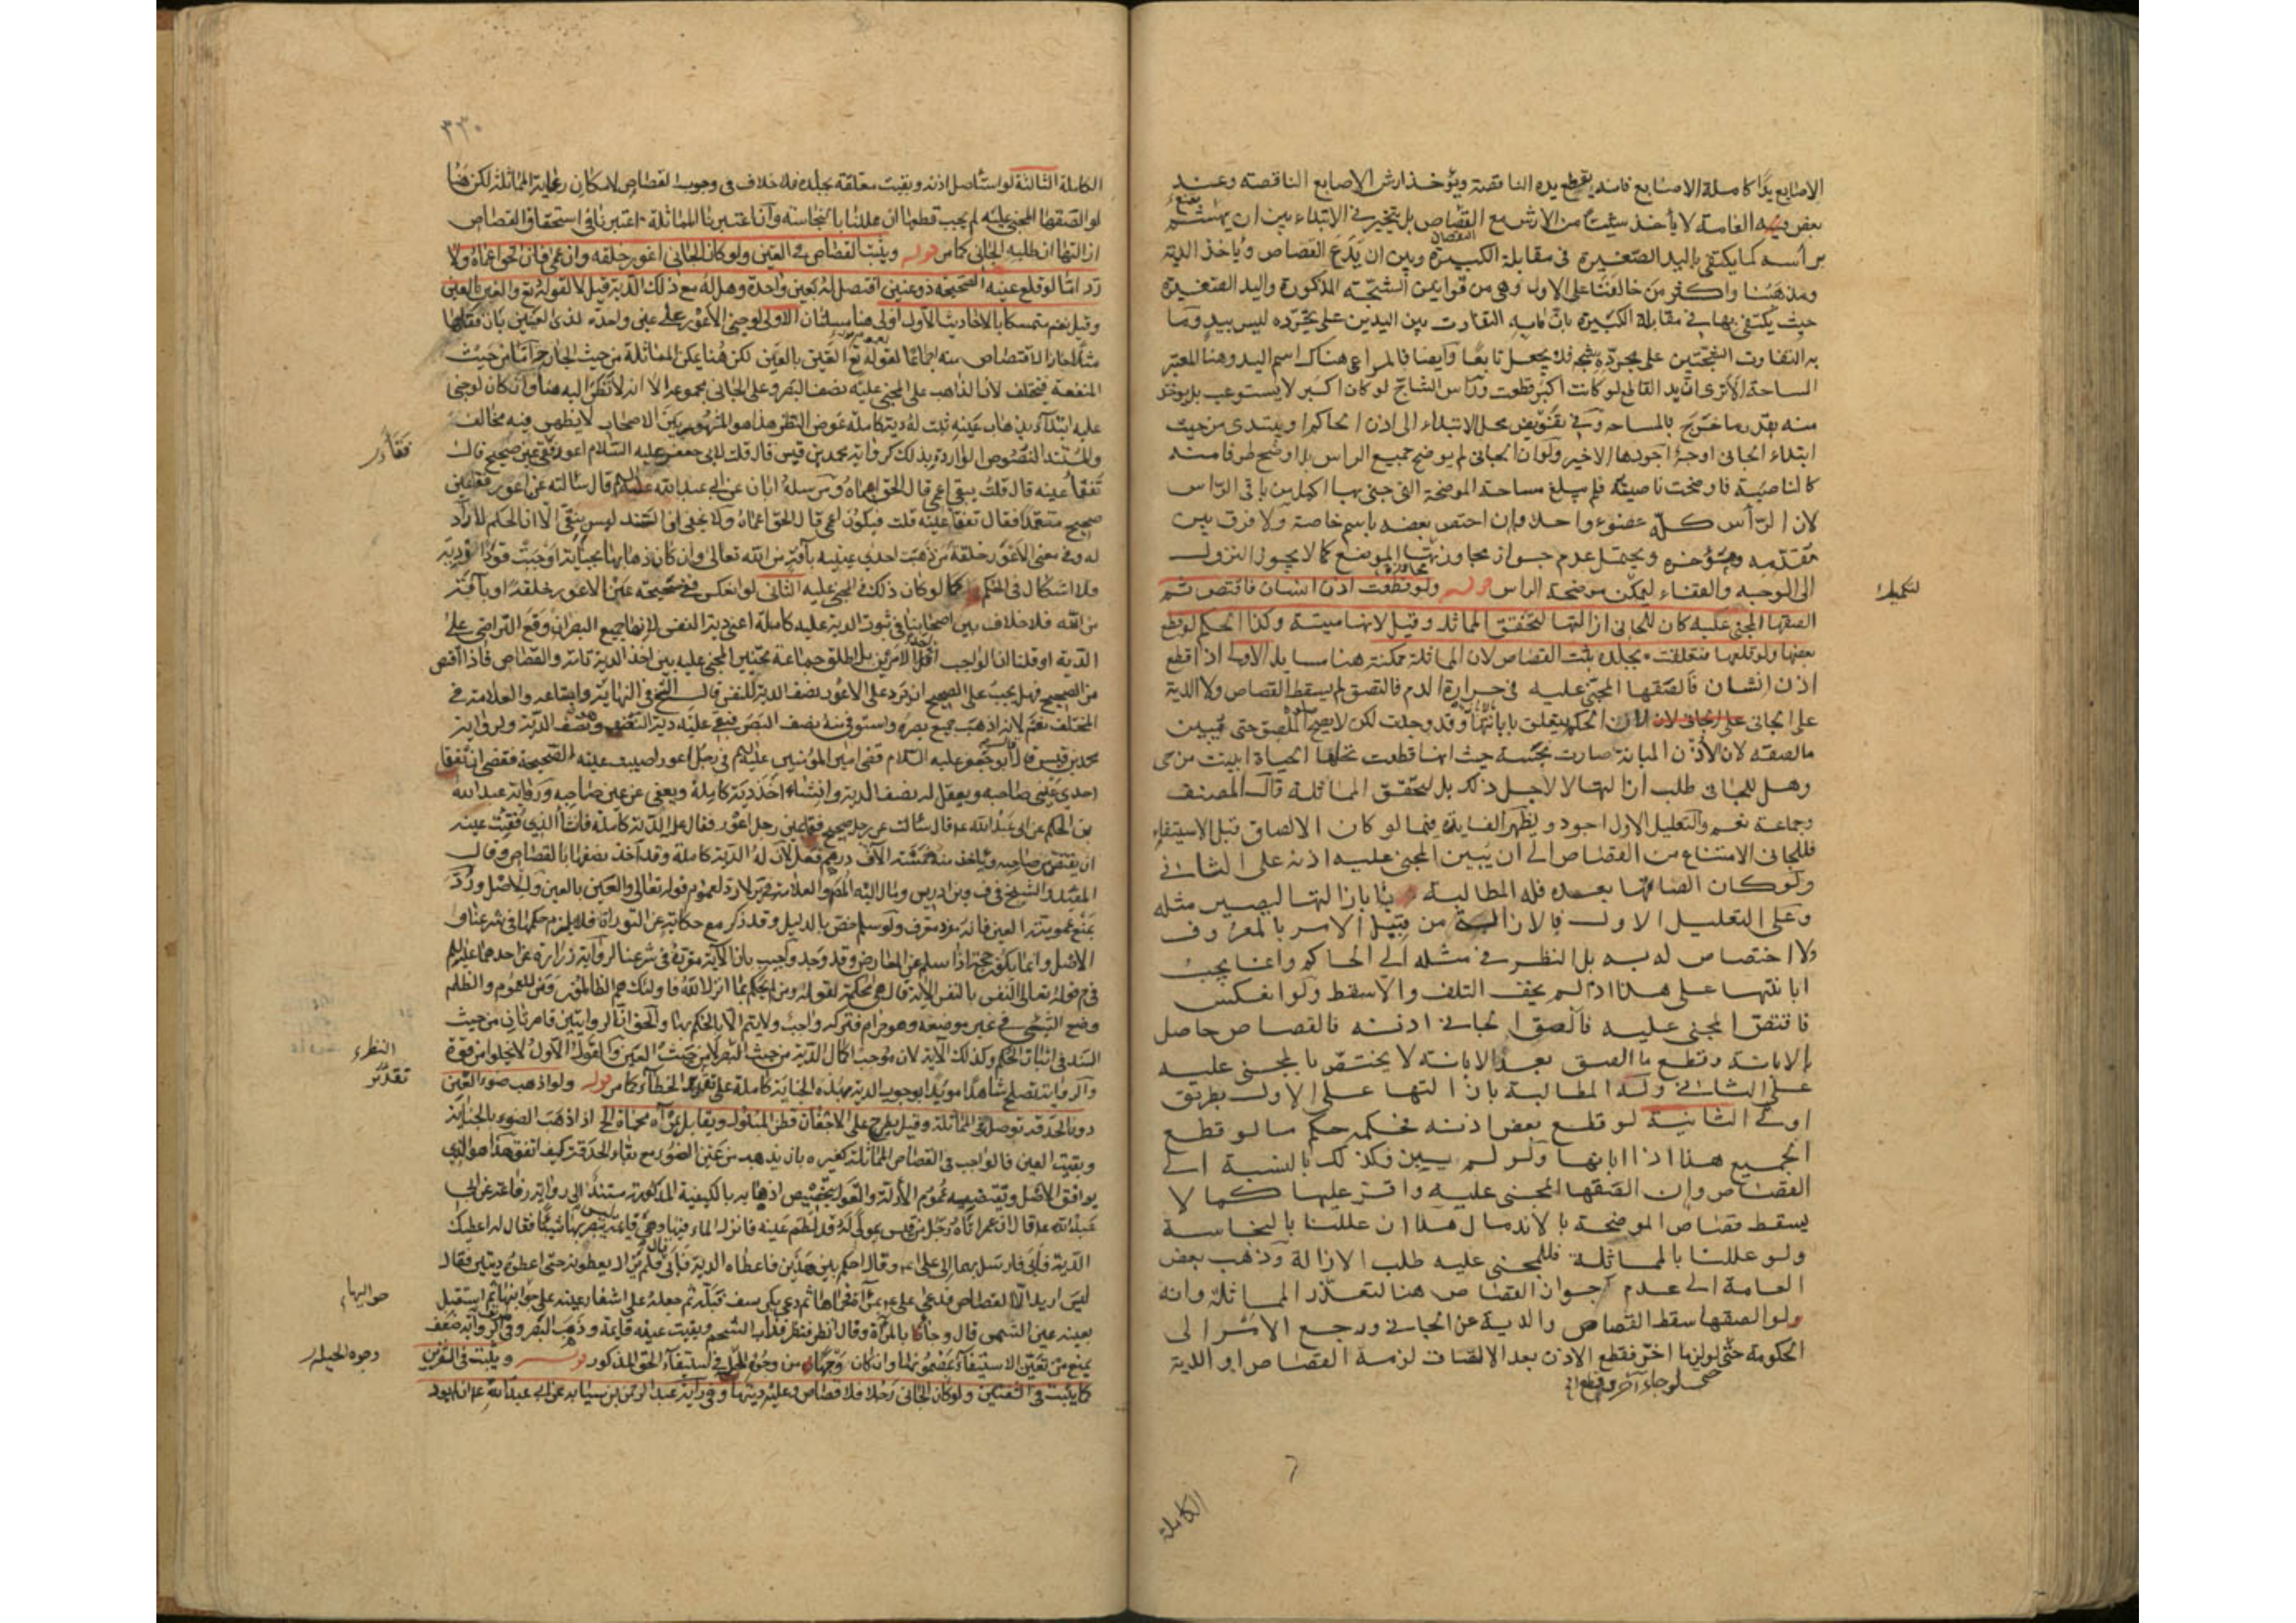 الاصابع يدا كاملة الاصابع فانه يقطع يده الناقصة ويؤخذ ارش الاصابع الناقصة وعند
بعض العامة لا يأخذ شيئا من الارش مع القصاص بل يتخير في الابتداء بين ان يقتنع
برأسه كما يكتفى باليد الصغيرة في مقابلة الكبيرة وبين ان يدع القصاص وياخذ الدية
ومذهبنا واكثر من خالفنا على الاول وهي من قوا بين الشجة المذكورة واليد الصغيرة
حيث يكتفى بها في مقابلة الكبيرة بان ما به التفاوت بين اليدين على مجرده ليس بيد وما
به التفاوت الشجتين على مجرده شجة فلا يجعل تابعا وايضا فالمراعى هناك اسم اليد وهنا المعتبر
المساحة الا ترى ان يد القاطع لو كانت اكبر قطعت ورأس الشاج لو كان اكبر لا يستوعب بل يؤخذ
منه بقدر ما خرج بالمساحة وفي تفويض محل الابتداء الى اذن الحاكم او يبتدى من حيث
ابتداء الجانى اوجه اجودها الاخير ولو ان الجانى لم يوضح جميع الراس بل اوضح طرفا منه
كالناصية فاوضحت ناصيته فلم يبلغ مساحة الموضحة التى جنى بها اكمل من باقى الراس
لان الرأس كله عضو واحد وان اختص بعضه باسم خاصة ولا فرق بين
مقدمه ومؤخره ويحتمل عدم جواز مجاوزتها الموضع كما لا يجوز النزول
الى الوجه والقفاء ليمكن موضحة الراس قوله ولو قطعت اذن انسان فاقتص ثم
الصقها المجنى عليه كان للجانى ازالتها لتحقق المماثلة وقيل لانها ميتة وكذا الحكم لو قطع
بعضها ولو قطعها فتعلقت بجلده ثبت القصاص لان المماثلة ممكنة هنا مسايل الاولى اذا قطع
اذن انسان فالصقها المجنى عليه في حرارة الدم فالتصق لم يسقط القصاص ولا الدية
على الجانى لان الحكم يتعلق بابانتها وقد وجدت لكن لا يصح الملصق حتى يبين
ما الصقه لان الاذن المبانة صارت نجسة حيث انها قطعت تحلها الحياة ابينت من حى
وهل للجانى طلب ازالتها لا لاجل ذلك بل لتحقق المماثلة قال المصنف
وجماعة نعم والتعليل الاول اجود ويظهر الفايدة فيما لو كان الالصاق قبل الاستيفاء
فللجانى الامتناع من القصاص الى ان يبين المجنى عليه اذنه على الثانى
ولو كان الصاقها بعده فله المطالبة بازالتها ليصير مثله
وعلى التعليل الاول فالازالة من قبيل الامر بالمعروف
ولا اختصاص له به بل النظر في مثله الى الحاكم وانما يجب
ابانتها على هذا اذا لم يخف التلف والا سقط ولو انعكس
فاقتص المجنى عليه فالصق الجانى اذنه فالقصاص حاصل
بالابانة وقطع ما الصق بعد الابانة لا يختص بالمجنى عليه
على الثانى وله المطالبة بازالتها على الاول بطريق
اولى الثانية لو قطع بعض اذنه فحكمه حكم ما لو قطع
الجميع هذا اذا ابانها ولو لم يبن فكذلك بالنسبة الى
القصاص وان الصقها المجنى عليه واقر عليها كما لا
يسقط قصاص الموضحة بالاندمال هذا ان عللنا بالنجاسة
ولو عللنا بالمماثلة فللمجنى عليه طلب الازالة وذهب بعض
العامة الى عدم جواز القصاص هنا لتعذر المماثلة وانه
ولو الصقها سقط القصاص والدية عن الجانى ورجع الامر الى
الحكومة حتى لو لزما اخر فقطع الاذن بعد الالتصاق لزمه القصاص او الدية
حتى لو جاء آخر وقطع
الكاملة
للتميك
٣٣٠
الكاملة الثالثة لو استأصل اذنه وبقيت معلقة بجلده فلا خلاف في وجوب القصاص لامكان رعاية المماثلة لكن هنا
لو الصقها المجنى عليه لم يجب قطعها ان عللنا بالنجاسة وان اعتبرنا المماثلة اعتبرنا في استحقاق القصاص
ازالتها ان طلبه الجانى كما مر قوله ويثبت القصاص في العين ولو كان الجانى اعور خلقه وان عمى فان الحق اعماه ولا
رد اما لو قلع عينه الصحيحة ذو عينين اقتص له بعين واحدة وهل له مع ذلك الدية قيل لا لقوله تع والعين بالعين
وقيل نعم تمسكا بالاحاديث الاول اولى هنا مسئلتان الاولى لو جنى الاعور على عين واحدة لذى العينين بان قلعها
مثلا جاز الاقتصاص منه اجماعا لقوله تع العين بالعين لكن هنا يمكن المماثلة من حيث الجارحة اما من حيث
المنفعة فيختلف لان الذاهب على المجنى عليه نصف البصر وعلى الجانى مجموعه الا انه لا نظر اليه هنا وان كان لو جنى
عليه ابتداء بذهاب عينه ثبت له دية كاملة عوض النظر هذا هو المشهور بين الاصحاب لا يظهر فيه مخالف
والمستند النصوص الواردة بذلك كرواية محمد بن قيس قال قلت لابى جعفر عليه السلام اعور فقأ عين صحيح قال
تفقأ عينه قال قلت يبقى اعمى قال الحق اعماه ومرسلة ابان عن ابى عبد الله عليه السلام قال سألته عن اعور فقأ عين
صحيح متعمدا فقال تفقأ عينه قلت فيكون اعمى قال الحق اعماه ولا يخفى ان السند ليس بنقى الا ان الحكم لا راد
له وفي معنى الاعور خلقة من ذهبت احدى عينيه بآفة من الله تعالى وان كان ذهابها بجناية اوجبت قودا او دية
فلا اشكال في الحكم كما لو كان ذلك في المجنى عليه الثانى لو انعكس ففقئت صحيحة عين الاعور خلقة او بآفة
من الله فلا خلاف بين اصحابنا في ثبوت الدية عليه كاملة اعنى دية النفس لابطال جميع البصر ان وقع التراضى على
الدية او قلنا ان الواجب احد الامرين بل اطلق جماعة تخيير المجنى عليه بين اخذ الدية تامة والقصاص فاذا اقتص
من الصحيح فهل يجب على الصحيح ان يرد على الاعور نصف الدية للنفس قال الشيخ في النهاية واتباعه والعلامة في
المختلف نعم لانه اذهب جميع بصره واستوفى منه نصف البصر فيبقى عليه دية النصف وهو نصف الدية ولرواية
محمد بن قيس قال ابو جعفر عليه السلام قضى امير المؤمنين عليه السلم في رجل اعور اصيبت عينه الصحيحة ففقئت ان تفقأ
احدى عينى صاحبه ويعقل له نصف الدية وان شاء اخذ دية كاملة ويعفى عن عين صاحبه ورواية عبد الله
بن الحكم عن ابى عبد الله ع قال سألت عن رجل صحيح فقأ عين رجل اعور فقال عليه الدية كاملة فان شاء الذى فقئت عينه
ان يقتص من صاحبه ويأخذ منه خمسة الآف درهم فعل لان له الدية كاملة وقد اخذ نصفها بالقصاص وقال
المفيد والشيخ في ف وابن ادريس ومال اليه المصنف والعلامة في ير لا رد لعموم قوله تعالى والعين بالعين وللاصل ورد
بمنع عمومية العين فانه مفرد معرف ولو سلم خص بالدليل وقد ذكر مع حكايته عن التوراة فلا يلزم حكمها في شرعنا و
الاصل وانما يكون حجة اذا سلم عن المعارض وقد وجد واجيب بان الاية مقررة في شرعنا لرواية زرارة عن احدهما عليهما السلم
في قوله تعالى النفس بالنفس الاية قال هى محكمة لقوله ومن لم يحكم بما انزل الله فاولئك هم الظالمون ومن للعموم والظلم
وضع الشئ في غير موضعه وهو حرام فتركه واجب ولا يتم الا بالحكم بها والحق ان الروايتين قاصرتان من حيث
السند في اثبات الحكم وكذلك الاية لان موجب اكمال الدية من حيث البصر لا من حيث العين والقول الاول لا يخلوا من قوة
والرواية تصلح شاهدا مؤيدا بوجوب الدية بهذه الجناية كاملة على تقدير الخطأ كما مر قوله ولو اذهب ضوء العين
دون الحدقة توصل في المماثلة وقيل يطرح على الاجفان قطن مبلول ويقابل بمرآة محماة الخ اذا اذهب الضوء بالجناية
وبقيت العين فالواجب في القصاص المماثلة كغيره بان يذهب من عينه الضوء مع بقاء الحدقة كيف اتفق هذا هو الذى
يوافق الاصل ويقتضيه عموم الادلة والقول بتخصيص اذهابه بالكيفية المذكورة مستندا الى رواية رفاعة عن ابى
عبد الله ع قال ان عمر اتاه رجل من قيس بمولى له قد لطم عينه فانزل الماء فيها وهى قائمة ليس يبصر بها شيئا فقال له اعطيك
الدية فأبى فارسل بهما الى على ع وقال احكم بين هذين فاعطاه الدية فأبى قال فلم يزالوا يعطونه حتى اعطوه ديتين فقال
ليس اريد الا القصاص فدعى على ع بمرآة فحماها ثم دعى بكرسف فبله ثم جعله على اشفار عينيه على حواليها ثم استقبل
بعينه عين الشمس قال وجاءنا بالمرآة وقال انظر فنظر فذاب الشحم وبقيت عينه قايمة وذهب البصر وفى الرواية ضعف
يمنع من تعين الاستيفاء بمضمونها وان كان وجها من وجوه الحيل في استيفاء الحق المذكور قوله ويثبت في الشفرين
كما يثبت في الشفتين ولو كان الجانى رجلا فلا قصاص وعليه ديتها وفي رواية عبد الرحمن بن سيابه عن ابى عبد الله ع ان لم يود
فقأ
النظر
تقدير
حواليها
وجوه الحيلة